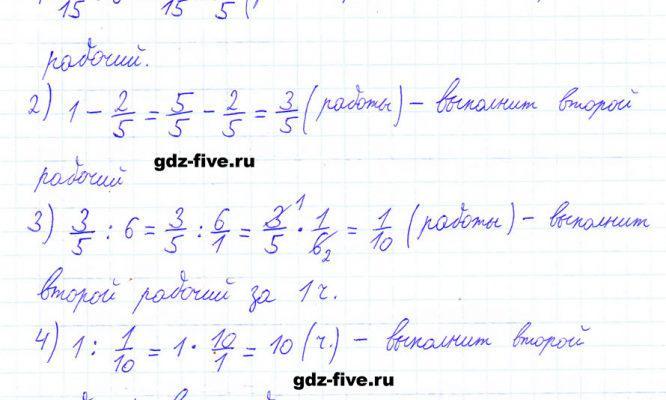 15 15 5
рабочий.
2) 1 - 2/5 = 5/5 - 2/5 = 3/5 (работы) - выполнит второй
gdz-five.ru
рабочий
3) 3/5 : 6 = 3/5 : 6/1 = 3/5 1 · 1/6 2 = 1/10 (работы) - выполнит
второй рабочий за 1 ч.
4) 1 : 1/10 = 1 · 10/1 = 10 (ч.) - выполнит второй
gdz-five.ru